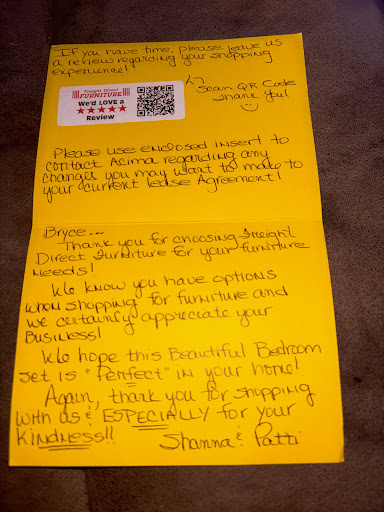 If you have time, please leave us
a review regarding your shopping
experience!
Freight Direct
FURNITURE
We'd LOVE a
★★★★★
Review
Scan QR Code
Thank You!
Please use enclosed insert to
contact Acima regarding any
changes you may want to make to
your current lease Agreement!
Bryce...
Thank you for choosing Freight
Direct Furniture for your furniture
needs!
We know you have options
when shopping for furniture and
we certainly appreciate your
Business!
We hope this Beautiful Bedroom
set is "Perfect" in your home!
Again, thank you for shopping
with us & ESPECIALLY for your
Kindness!!
Shanna & Patti